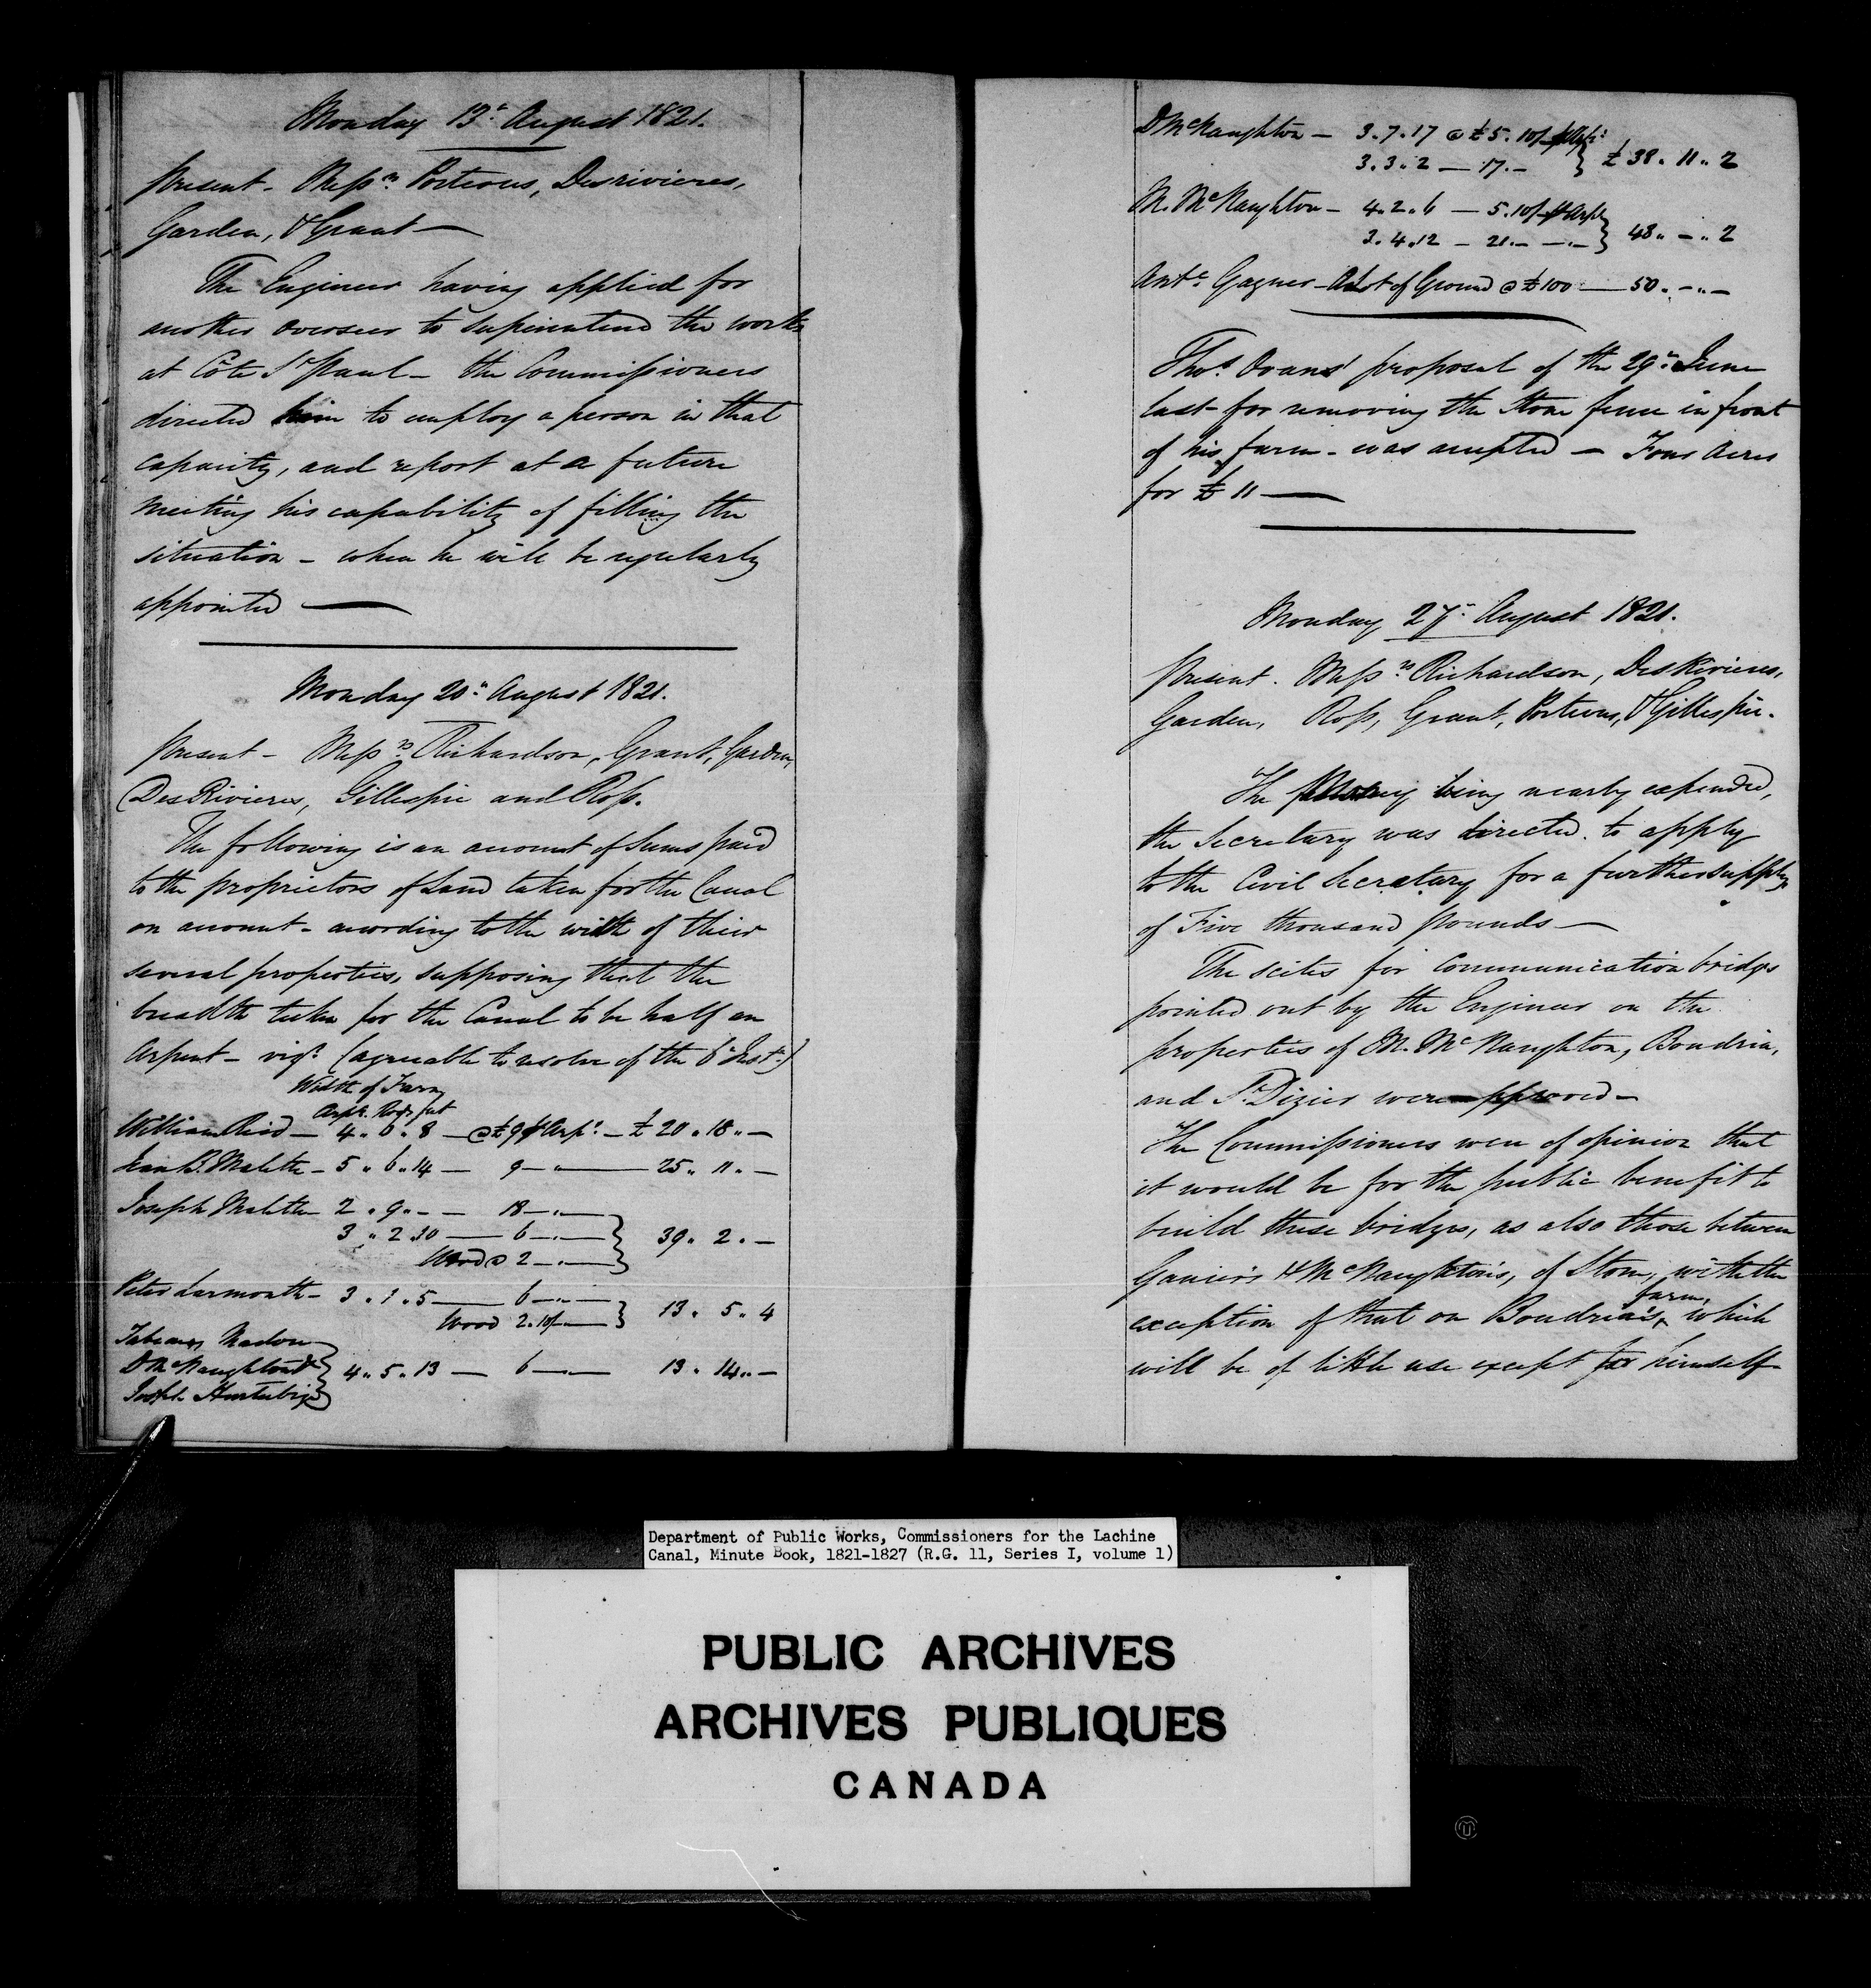 Monday 13th August 1821.
Present - Messrs Porteous, Desrivieres,
Garden, & Grant —
The Engineer having applied for
another overseer to superintend the works
at Côte St Paul - the Commissioners
directed him to employ a person in that
capacity, and report at a future
meeting his capability of filling the
situation - when he will be regularly
appointed —
Monday 20th August 1821.
Present - Messrs Richardson, Grant, Garden,
DesRivieres, Gillespie and Ross.
The following is an account of Sums paid
to the proprietors of Land taken for the Canal
on account - according to the width of their
several properties, supposing that the
breadth taken for the Canal to be half an
Arpent - vizt (agreeable to resolve of the 6th Inst.)
Width of Farm
Arpts. Rods feet
William Reid — 4 " 6 " 8 — @ £9 p Arpt — £ 20 " 18 " —
Jean B. Malette - 5 " 6 " 14 — 9 — " — 25 " 11 " —
Joseph Malette 2 " 9 " - — 18 — " —
3 " 2 " 10 — 6 — " — } 39 " 2 " —
Wood @ 2 — " —
Peter Larmonth - 3 " 1 " 5 — 6 — " —
Wood 2.10/- — } 13 " 5 " 4
Nadon
D McNaughton &
Joseph Hurtubise } 4 " 5 " 13 — 6 — " — 13 " 14 " —
D McNaughton — 3 . 7 . 17 @ £5 . 10/ p Arpt
3 . 3 . 2 — 17 . - } £ 38 " 11 " 2
M. McNaughton — 4 . 2 . 6 — 5 . 10/ p Arpt
3 . 4 . 12 — 21 . - — . — } 48 " - " 2
Ante Gagner - A Lot of Ground @ £100 — 50 . - " -
Thos. Evans' proposal of the 29th June
last - for removing the Stone fence in front
of his farm - was accepted — Four Acres
for £ 11 —
Monday 27th August 1821.
Present - Messrs Richardson, DesRivieres,
Garden, Ross, Grant, Porteous, & Gillespie.
The Money being nearly expended,
the Secretary was directed to apply
to the Civil Secretary for a further supply
of Five thousand pounds —
The scites for communication bridges
pointed out by the Engineer on the
properties of M. McNaughton, Boudria,
and St. Dizier were approved —
The Commissioners were of opinion that
it would be for the public benefit to
build these bridges, as also those between
& McNaughton's, of Stone, with the
exception of that on Boudria's farm, which
will be of little use except for himself -
Department of Public Works, Commissioners for the Lachine
Canal, Minute Book, 1821-1827 (R.G. 11, Series I, volume 1)
PUBLIC ARCHIVES
ARCHIVES PUBLIQUES
CANADA